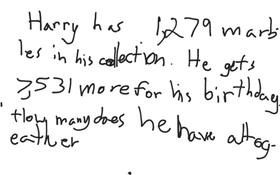 Harry has 1,279 marb
les in his collection. He gets
3,531 more for his birthday.
How many does he have altog-
eather